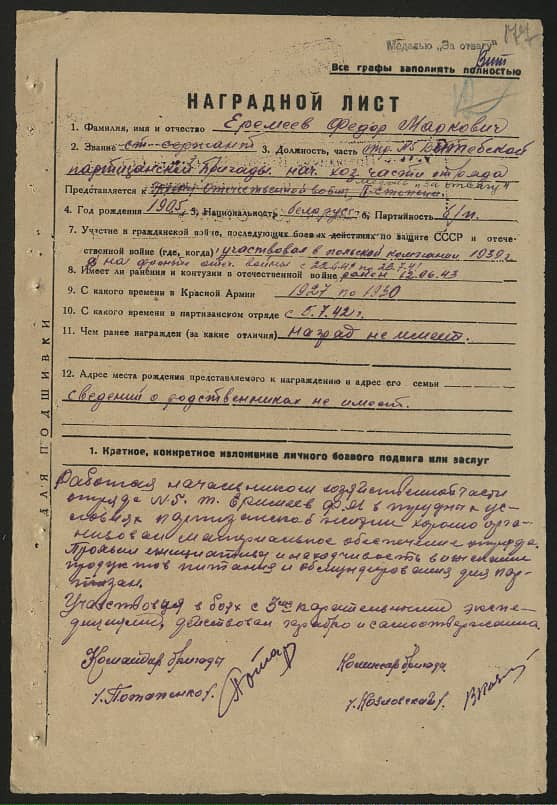 177
Медалью „За отвагу"
Вит
Все графы заполнять полностью
НАГРАДНОЙ ЛИСТ
1. Фамилия, имя и отчество Еремеев Федор Маркович
2. Звание ст-сержант 3. Должность, часть отр. №5 Витебской
партизанской бригады. нач. хоз части отряда
Медаль „За отвагу"
Представляется к Отечественной войны II-степени.
4. Год рождения 1905 5. Национальность белорус 6. Партийность б/п.
7. Участие в гражданской войне, последующих боевых действиях по защите СССР и отече-
ственной войне (где, когда) участвовал в польской компании 1939 г
на фронте отеч. войны с 22.6.41 по 28.7.41
8. Имеет ли ранения и контузии в отечественной войне ранен 12.06.43
9. С какого времени в Красной Армии 1927 по 1930
10. С какого времени в партизанском отряде с 5.7.42 г.
11. Чем ранее награжден (за какие отличия) наград не имеет.
12. Адрес места рождения представляемого к награждению и адрес его семьи
сведений о родственниках не имеет.
ДЛЯ ПОДШИВКИ
1. Краткое, конкретное изложение личного боевого подвига или заслуг
Работая начальником хозяйственной части
отряда №5. т. Еримеев Ф.М в трудных ус-
ловиях партизанской жизни хорошо орга-
низовал материальное обеспечение отряда.
Проявил инициативу и находчивость в
продуктов питания и обмундирования для пар-
тизан.
Участвовал в боях с 3мя карательными экспе-
дициями, действовал храбро и самоотверженно.
Командир бригады Комиссар бригады
/.Потапенко/. /.Козловский/.